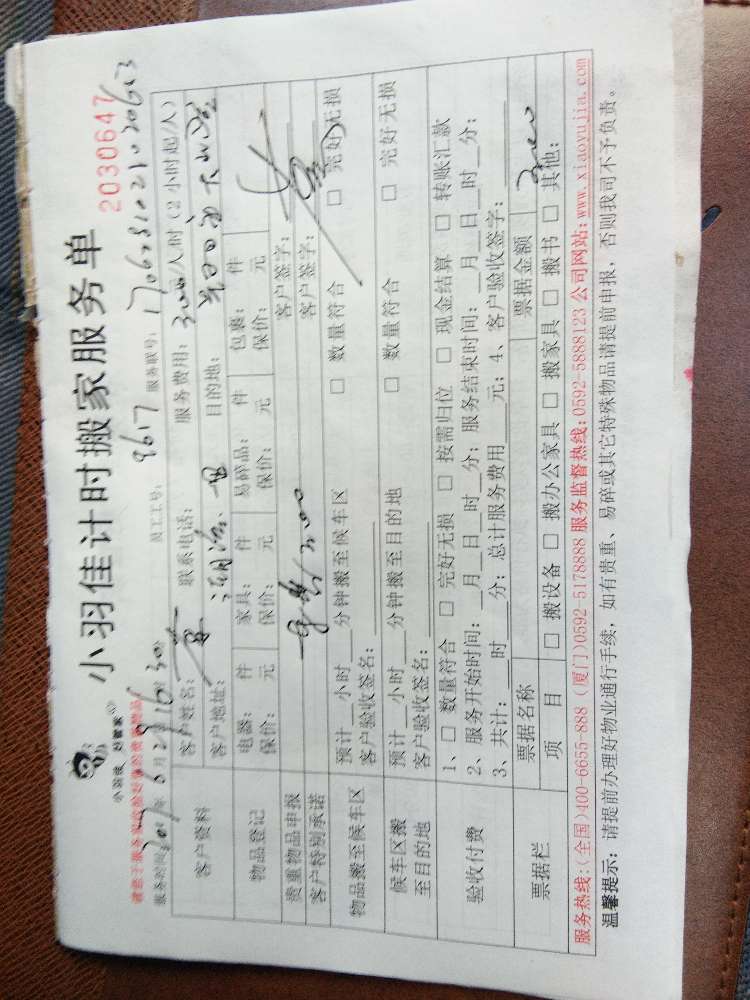 小羽佳 好管家
小羽佳计时搬家服务单
2030647
员工工号: 8617 服务联号:
服务时间: 2017年6月29日16时30分
客户资料
客户姓名: 联系电话: 服务费用: 300/人时(2小时起/人)
客户地址: 目的地:
物品登记
电器: 件 家具: 件 易碎品: 件 包裹: 件
保价: 元 保价: 元 保价: 元 保价: 元
贵重物品申报 客户签字:
客户特别承诺 客户签字:
物品搬至候车区
预计__小时__分钟搬至候车区 □ 数量符合 □ 完好无损
客户验收签名:
候车区搬至目的地
预计__小时__分钟搬至目的地 □ 数量符合 □ 完好无损
客户验收签名:
验收付费
1、□ 数量符合 □ 完好无损 □ 按需归位 □ 现金结算 □ 转账汇款
2、服务开始时间:__月__日__时__分; 服务结束时间:__月__日__时__分;
3、共计:__时__分; 总计服务费用__元; 4、客户验收签字:
票据栏
票据名称 票据金额
项目 □ 搬设备 □ 搬办公家具 □ 搬家具 □ 搬书 □ 其他:
服务热线:(全国)400-6655-888 (厦门)0592 5178888 服务监督热线:0592-5888123 公司网站:www.xiaoyujia.com
温馨提示: 请提前办理好物业通行手续, 如有贵重、易碎或其它特殊物品请提前申报, 否则我司不予负责。